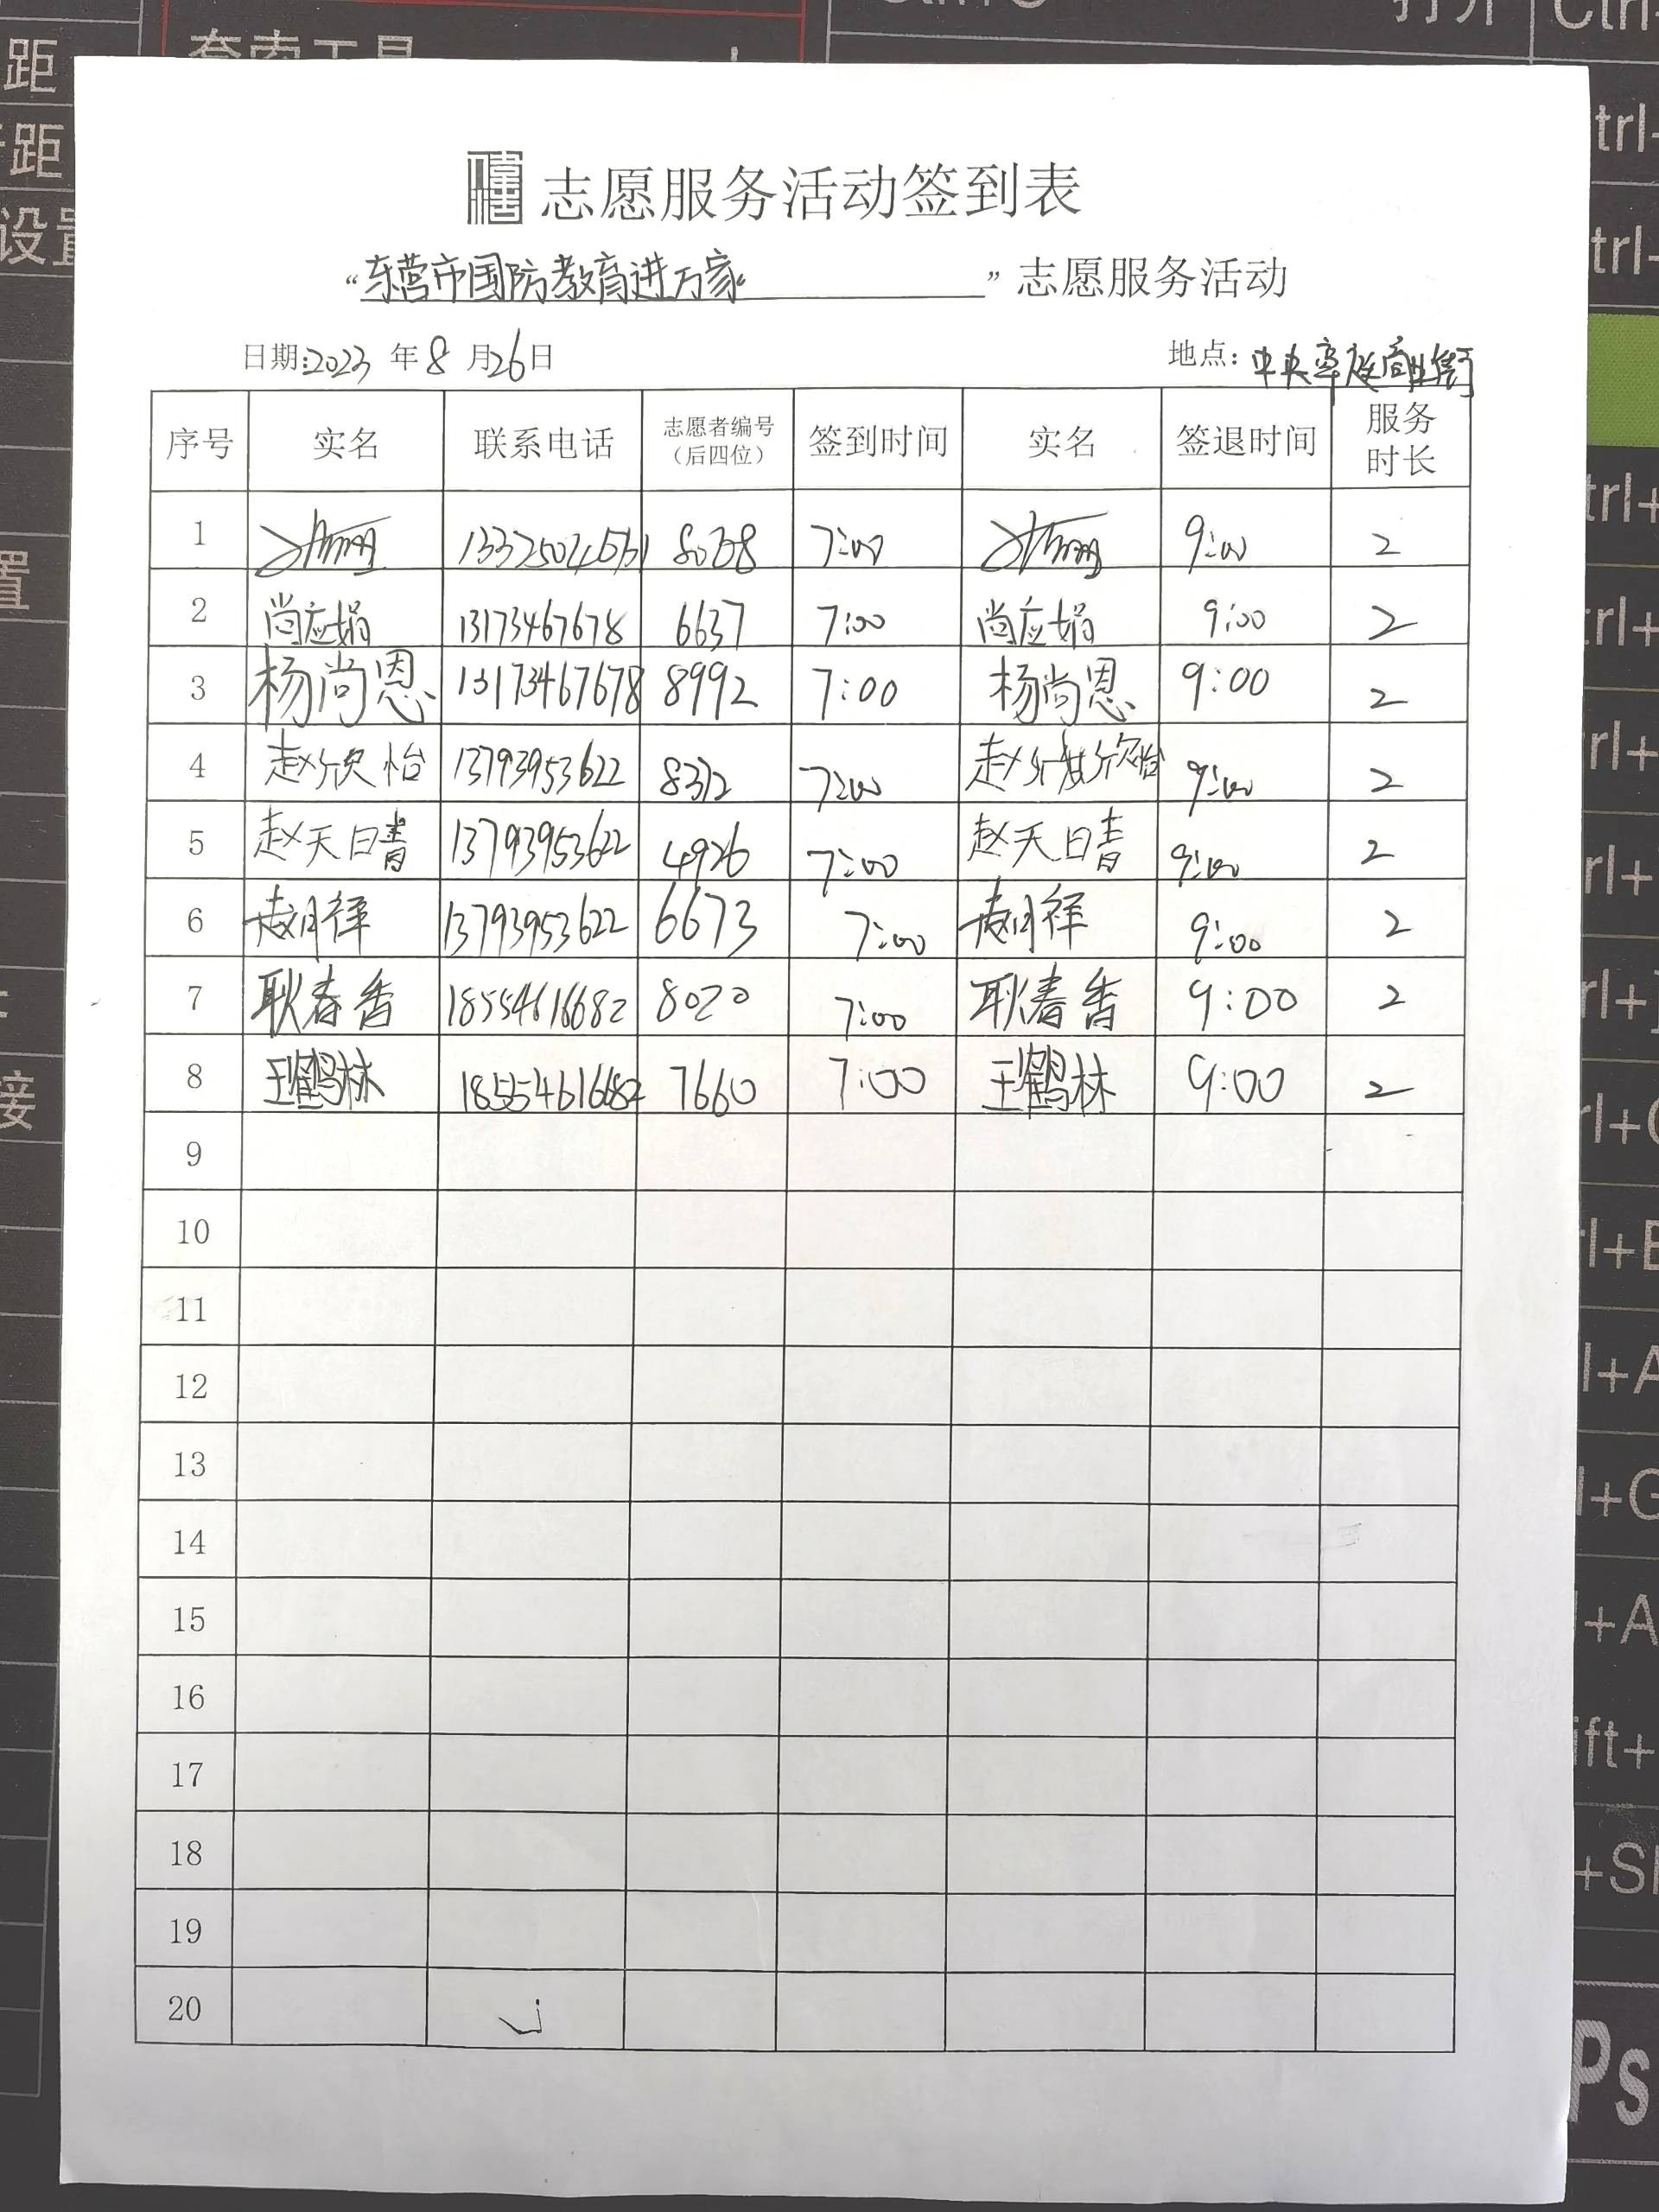 距
套索工具
打开
Ctrl+
距
trl+
设置
trl+
志愿服务活动签到表
“东营市国防教育进万家”志愿服务活动
日期:2023 年 8 月 26 日 地点: 中央 庭商业街
序号 实名 联系电话 志愿者编号（后四位） 签到时间 实名 签退时间 服务时长
1 8038 7:00 9:00 2
2 尚应娟 13173467678 6637 7:00 尚应娟 9:00 2
3 杨尚恩 13173467678 8992 7:00 杨尚恩 9:00 2
4 赵欣怡 13793953622 8312 7:00 赵 欣怡 9:00 2
5 赵天晴 13793953622 4926 7:00 赵天晴 9:00 2
6 赵月祥 13793953622 6673 7:00 赵月祥 9:00 2
7 耿春香 18554616682 8020 7:00 耿春香 9:00 2
8 王鹤林 18554616682 7660 7:00 王鹤林 9:00 2
9
10
11
12
13
14
15
16
17
18
19
20
置
接
Ps